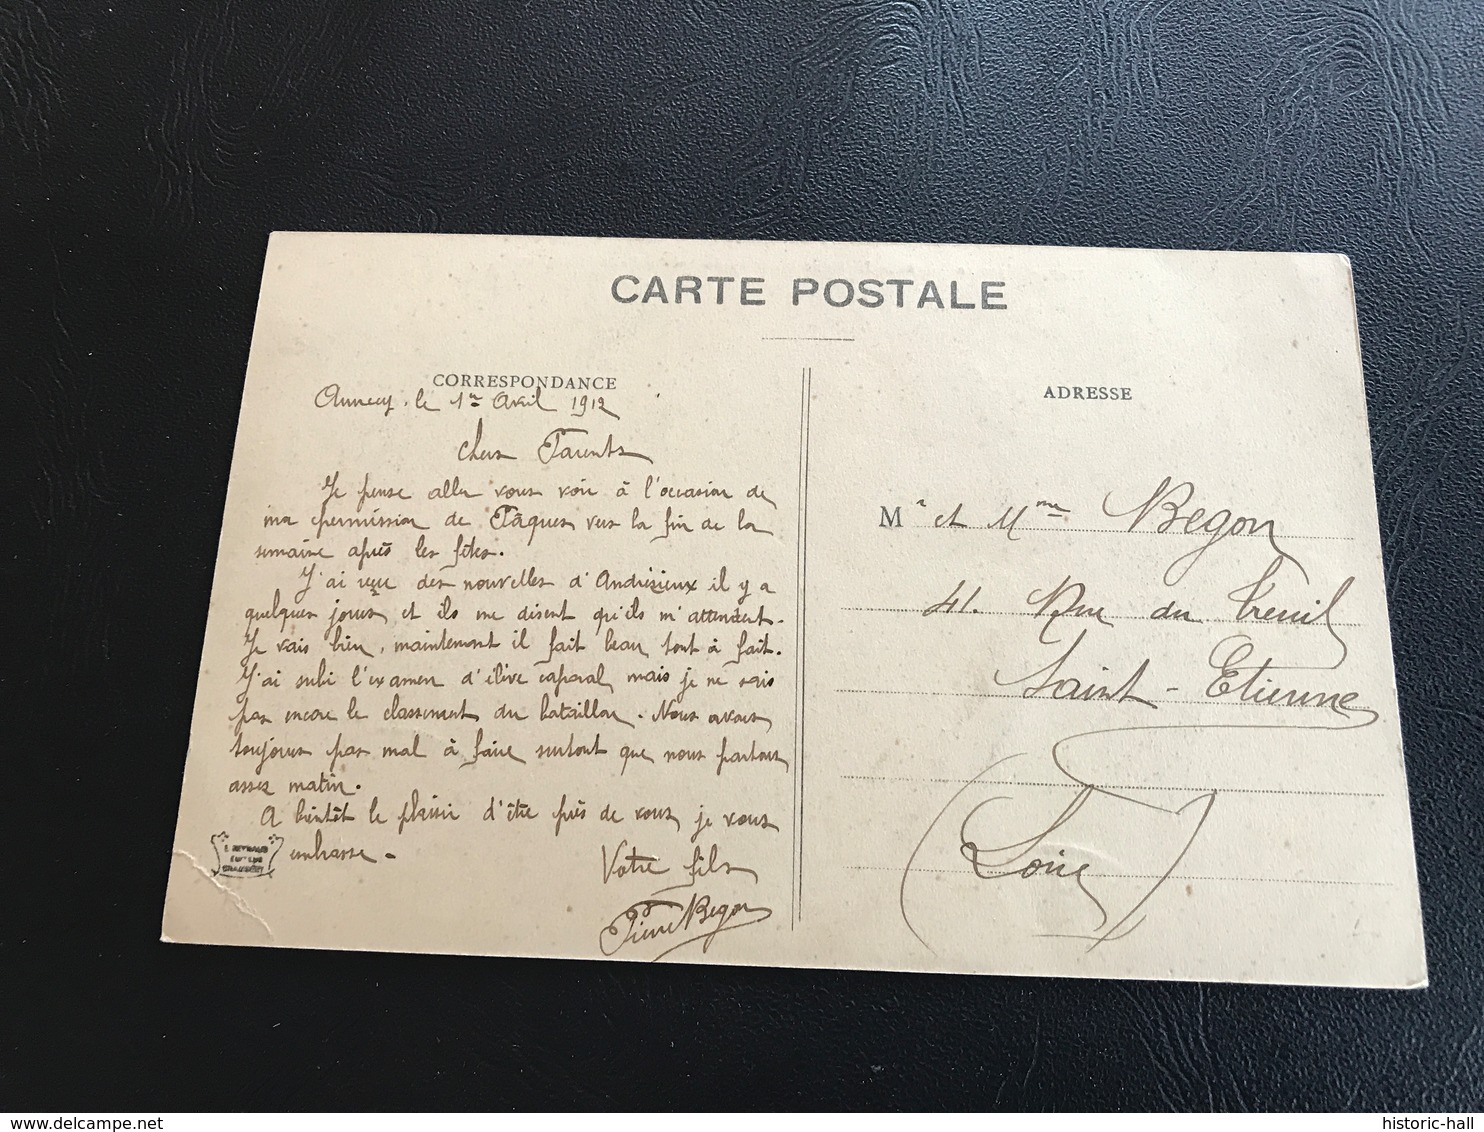 CARTE POSTALE
CORRESPONDANCE
Annecy, le 1er Avril 1912
Chers Parents
Je pense aller vous voir à l'occasion de
ma permission de Pâques vers la fin de la
semaine après les fêtes.
J'ai reçu des nouvelles d'Andrézieux il y a
quelques jours et ils me disent qu'ils m'attendent.
Je vais bien, maintenant il fait beau tout à fait.
J'ai subi l'examen d'élève caporal, mais je ne sais
pas encore le classement du bataillon. Nous avons
toujours pas mal à faire surtout que nous partons
assez matin.
A bientôt le plaisir d'être près de vous, je vous
embrasse -
Votre fils
Pierre Begon
ADRESSE
Mr et Mme Begon
41. Rue du Treuil
Saint-Etienne
(Loire)
historic-hall